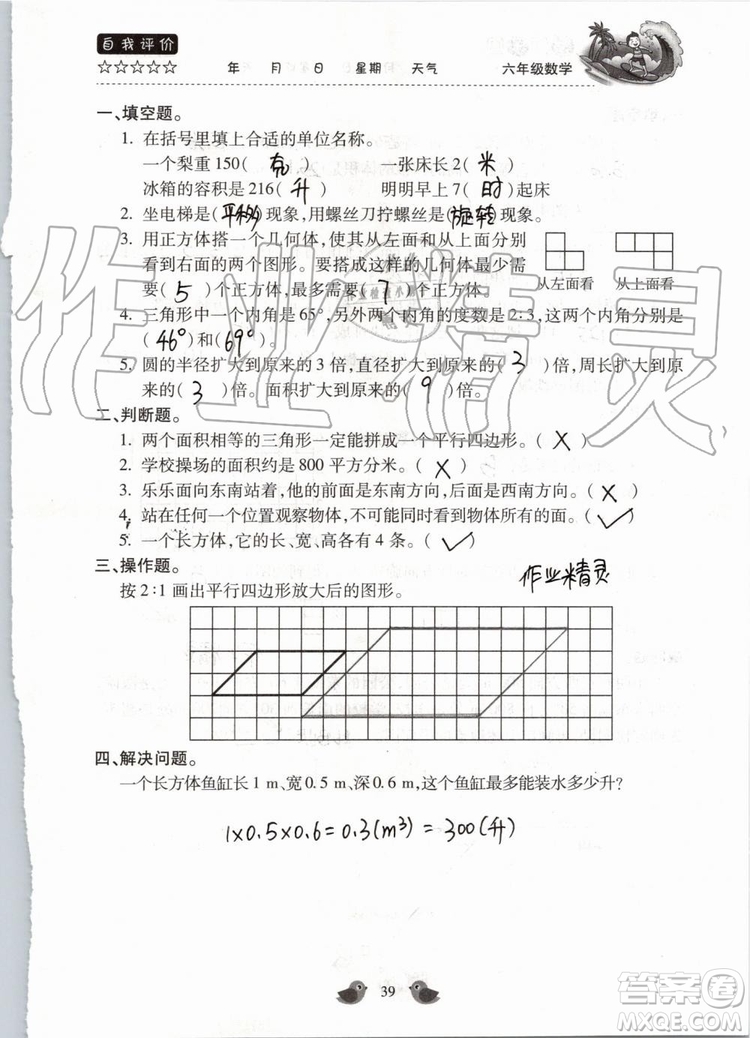 自我评价
☆☆☆☆☆ 年 月 日 星期 天气 六年级数学
一、填空题。
1. 在括号里填上合适的单位名称。
一个梨重150(克) 一张床长2(米)
冰箱的容积是216(升) 明明早上7(时)起床
2. 坐电梯是(平移)现象,用螺丝刀拧螺丝是(旋转)现象。
3. 用正方体搭一个几何体,使其从左面和从上面分别
看到右面的两个图形。要搭成这样的几何体最少需
要(5)个正方体,最多需要(7)个正方体。
从左面看 从上面看
4. 三角形中一个内角是65°,另外两个内角的度数是2∶3,这两个内角分别是
(46°)和(69°)。
5. 圆的半径扩大到原来的3倍,直径扩大到原来的(3)倍,周长扩大到原
来的(3)倍。面积扩大到原来的(9)倍。
二、判断题。
1. 两个面积相等的三角形一定能拼成一个平行四边形。(×)
2. 学校操场的面积约是800平方分米。(×)
3. 乐乐面向东南站着,他的前面是东南方向,后面是西南方向。(×)
4. 站在任何一个位置观察物体,不可能同时看到物体所有的面。(✓)
5. 一个长方体,它的长、宽、高各有4条。(✓)
三、操作题。
作业精灵
按2∶1画出平行四边形放大后的图形。
四、解决问题。
一个长方体鱼缸长1 m、宽0.5 m、深0.6 m,这个鱼缸最多能装水多少升?
1×0.5×0.6=0.3(m³)=300(升)
39
作业精灵
答案圈
MXQE.COM